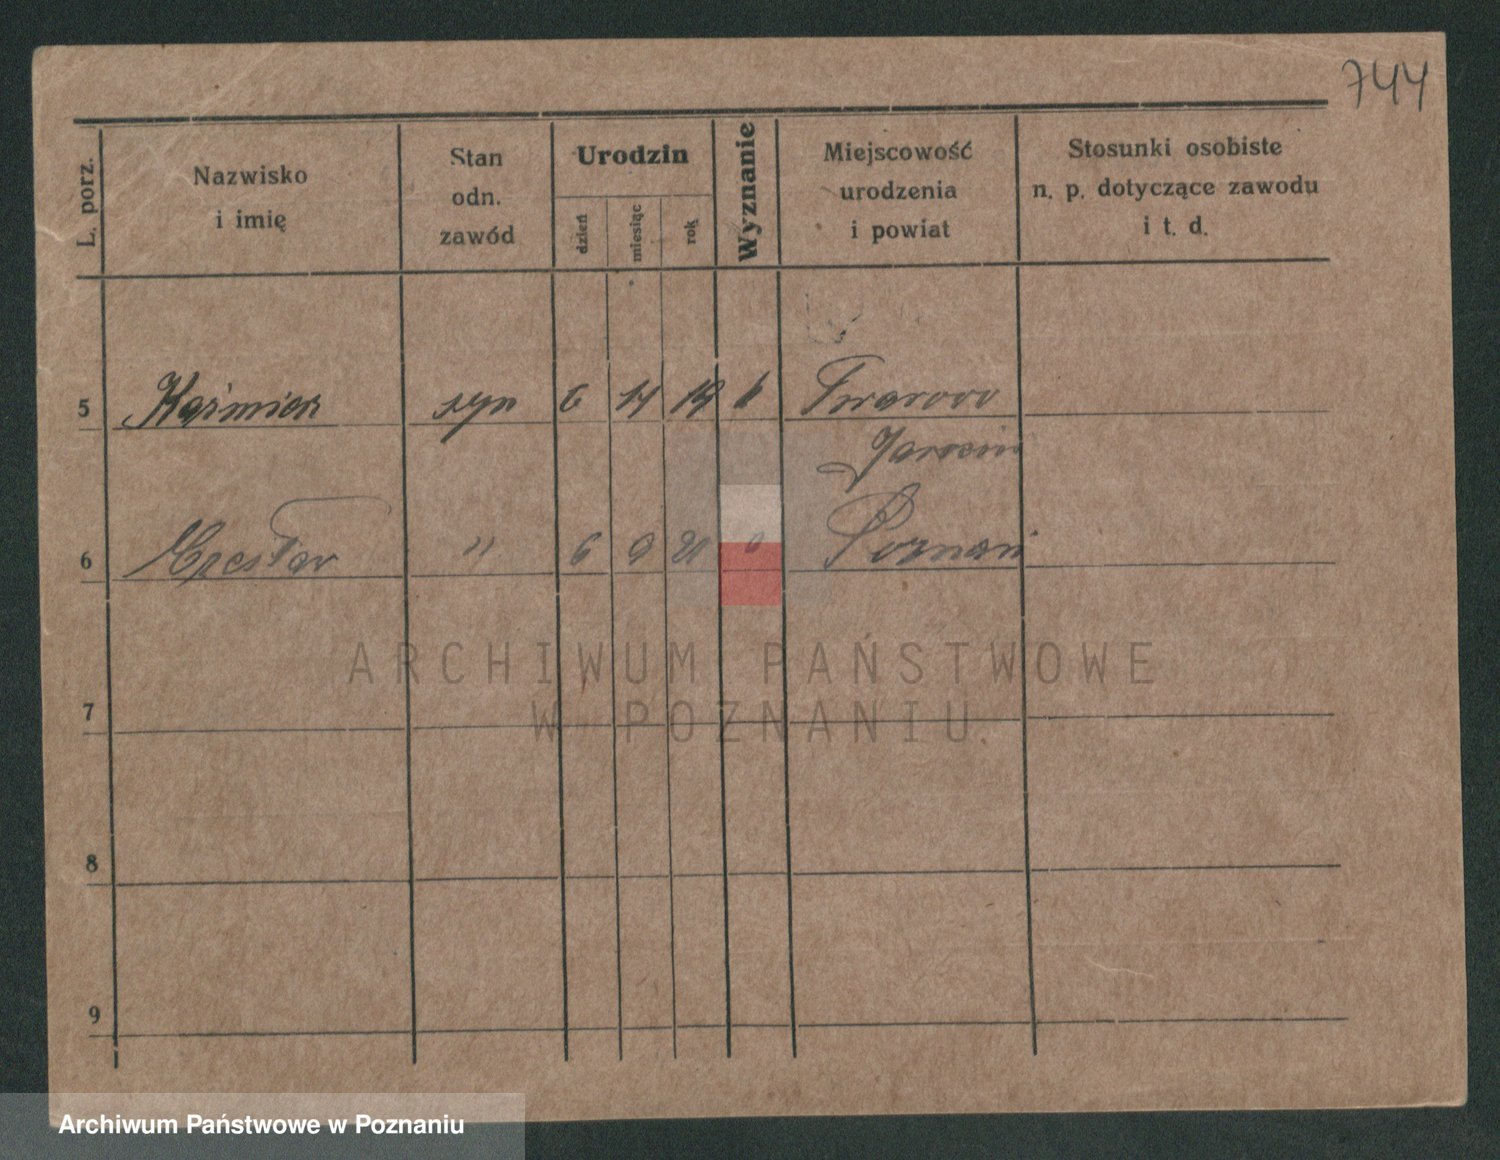 744
L. porz.
Nazwisko
i imię
Stan
odn.
zawód
Urodzin
dzień
miesiąc
rok
Wyznanie
Miejscowość
urodzenia
i powiat
Stosunki osobiste
n. p. dotyczące zawodu
i t. d.
5 syn 6
Jarocin
6 Czesław " 6 9 21 Poznań
7
8
9
ARCHIWUM PAŃSTWOWE
W POZNANIU
Archiwum Państwowe w Poznaniu